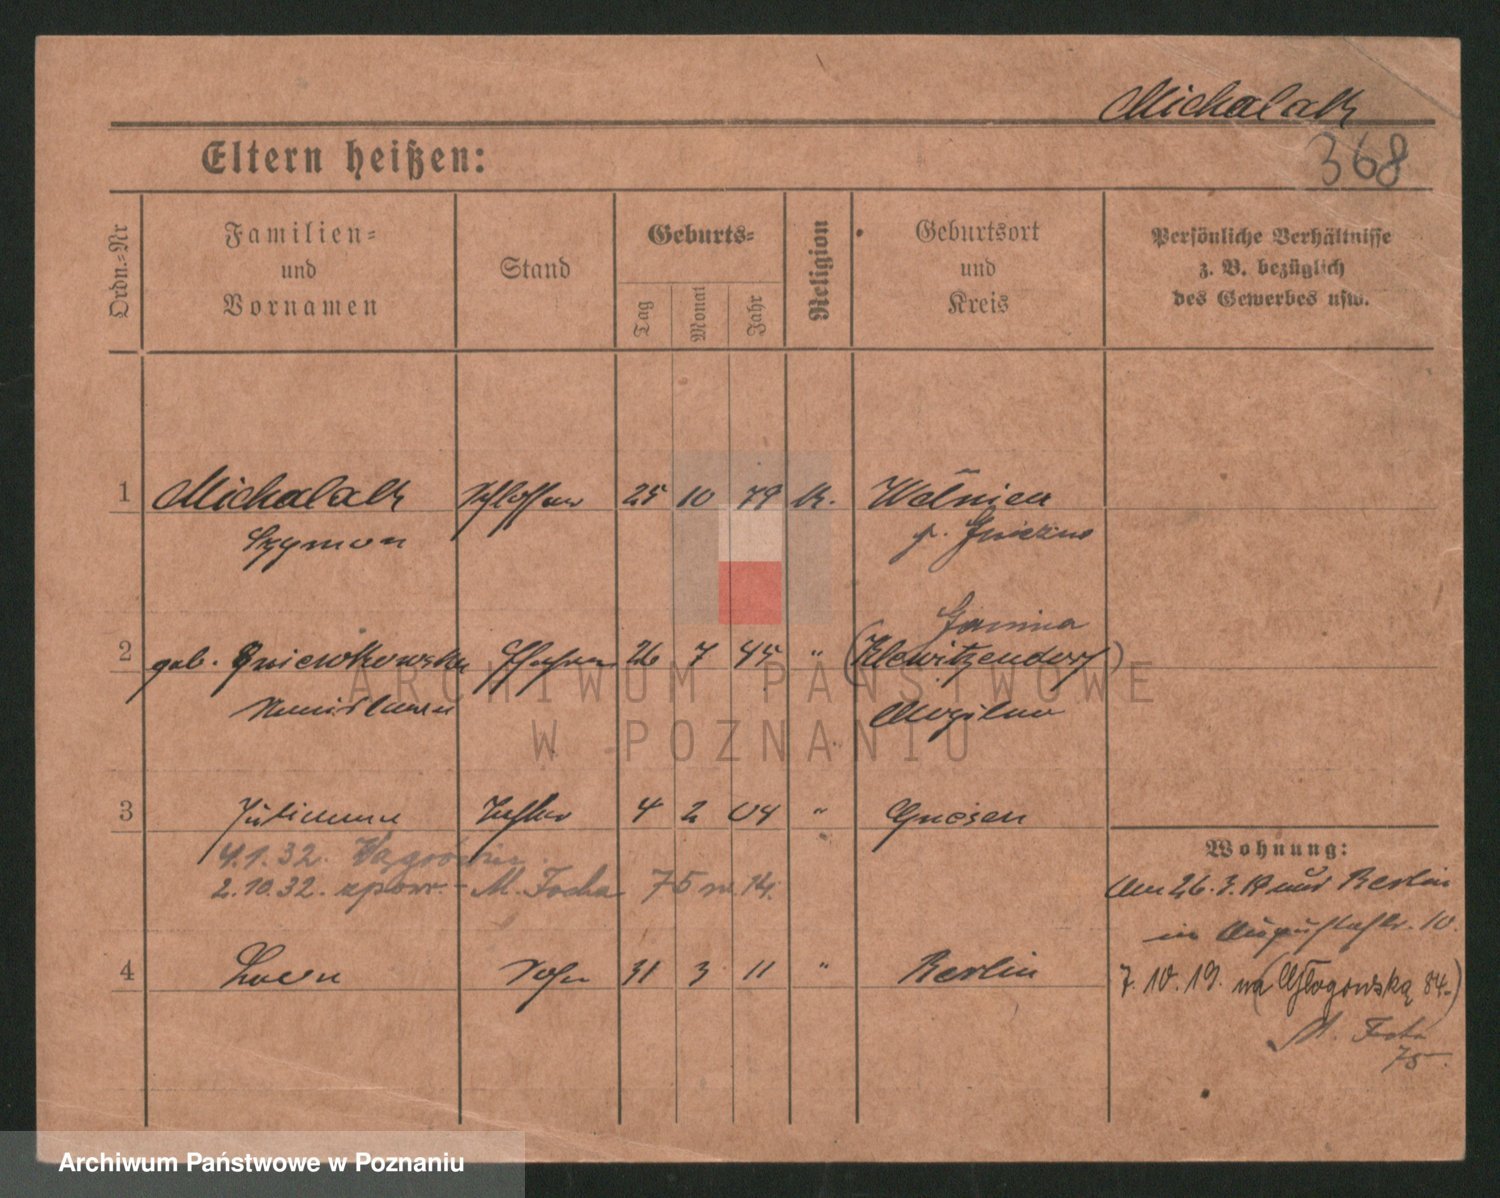 Michalak
368
Eltern heißen:
Ordn.=Nr
Familien=
und
Vornamen
Stand
Geburts=
Tag
Monat
Jahr
Religion
Geburtsort
und
Kreis
Persönliche Verhältnisse
z. B. bezüglich
des Gewerbes usw.
1 Michalak Schlosser 25 10 79 k. Wełnica
Szymon p. Gniezno
Janina
2 geb. Gniewkowska Ehefrau 26 7 45 " (Klewitzendorf)
Mogilno
3 Tochter 4 2 04 " Gnesen
4.1.32.
2.10.32. - M. Focha 75 m 14.
4 Sohn 31 3 11 " Berlin
Wohnung:
Am 26.3. aus Berlin
in Augustastr. 10.
7.10.19. na (Głogowską 84.)
M. Focha
75
ARCHIWUM PAŃSTWOWE
W POZNANIU
Archiwum Państwowe w Poznaniu